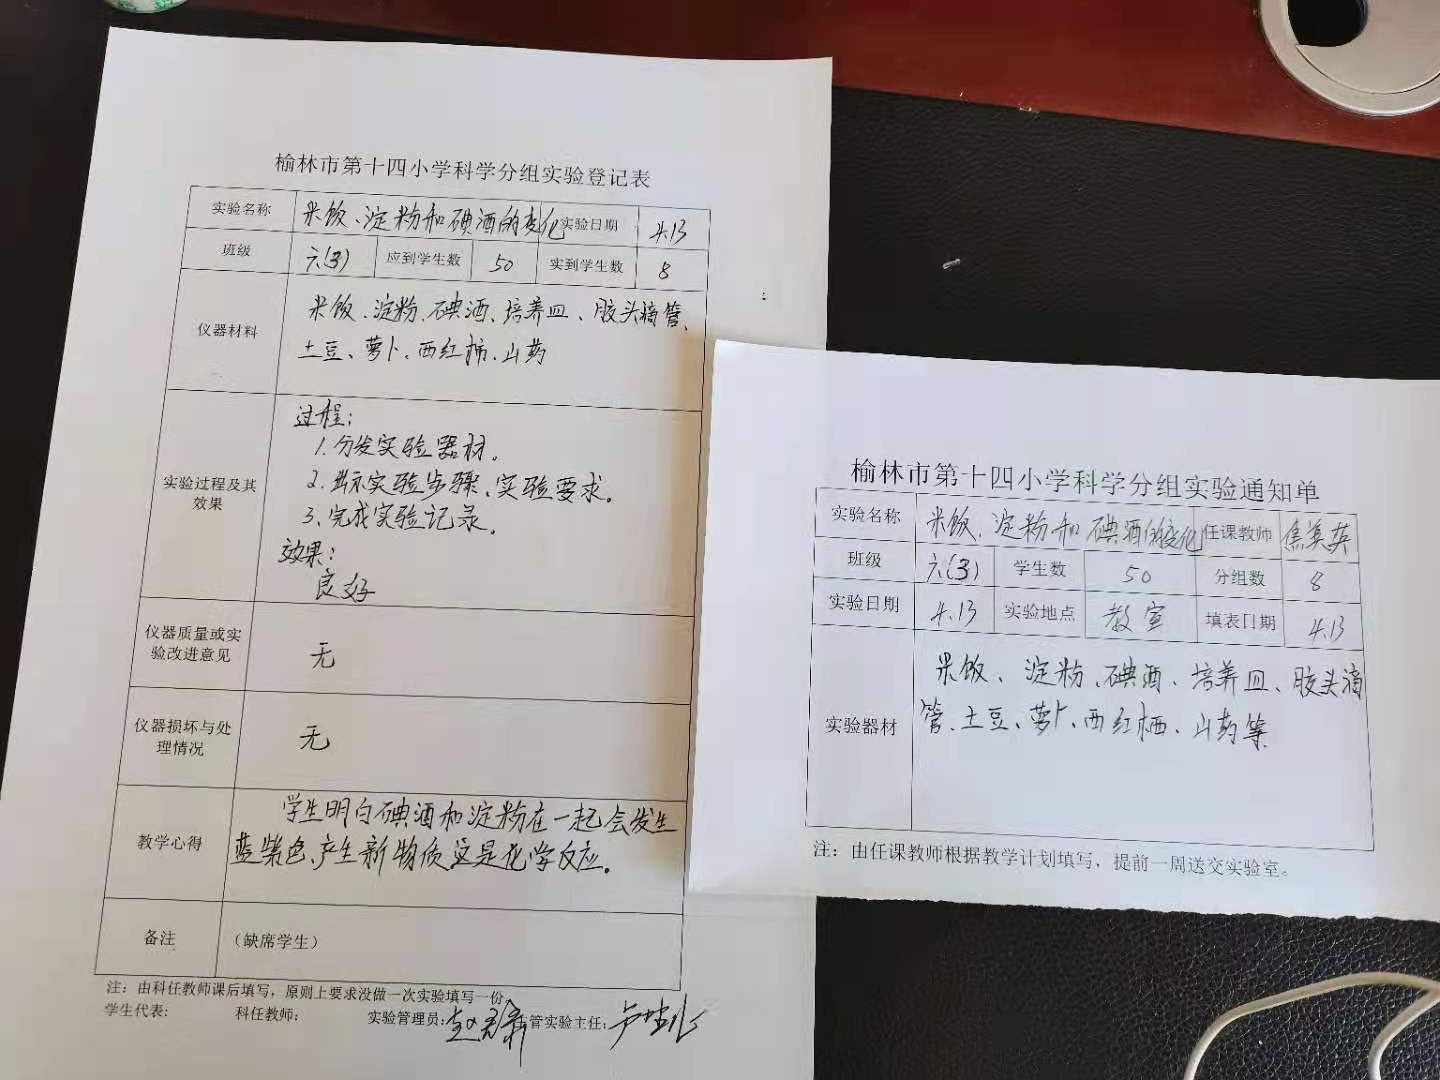 榆林市第十四小学科学分组实验登记表
实验名称 米饭、淀粉和碘酒的变化 实验日期 4.13
班级 六(3) 应到学生数 50 实到学生数 8
仪器材料
米饭、淀粉、碘酒、培养皿、胶头滴管、
土豆、萝卜、西红柿、山药
实验过程及其
效果
过程:
1.分发实验器材。
2.出示实验步骤、实验要求。
3.完成实验记录。
效果:
良好
仪器质量或实
验改进意见
无
仪器损坏与处
理情况
无
教学心得
学生明白碘酒和淀粉在一起会发生
蓝紫色,产生新物质这是化学反应。
备注 (缺席学生)
注:由科任教师课后填写,原则上要求没做一次实验填写一份
学生代表: 科任教师: 实验管理员: 管实验主任:
榆林市第十四小学科学分组实验通知单
实验名称 米饭、淀粉和碘酒的变化 任课教师 焦美英
班级 六(3) 学生数 50 分组数 8
实验日期 4.13 实验地点 教室 填表日期 4.13
实验器材
米饭、淀粉、碘酒、培养皿、胶头滴
管、土豆、萝卜、西红柿、山药等
注:由任课教师根据教学计划填写,提前一周送交实验室。